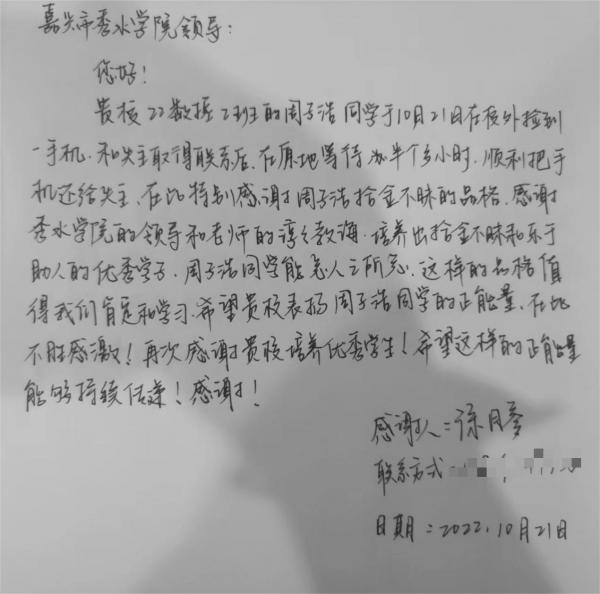 嘉兴市秀水学院领导:
您好!
贵校22数据2班的周子浩同学于10月21日在校外捡到
一手机.和失主取得联系后.在原地等待办半个多小时.顺利把手
机还给失主.在此特别感谢周子浩拾金不昧的品格.感谢
秀水学院的领导和老师的谆谆教诲.培养出拾金不昧和乐于
助人的优秀学子.周子浩同学能急人之所急.这样的品格值
得我们肯定和学习.希望贵校表扬周子浩同学的正能量.在此
不胜感激!再次感谢贵校培养优秀学生!希望这样的正能量
能够持续传递!感谢!
感谢人:徐月
联系方式
日期:2022.10月21日